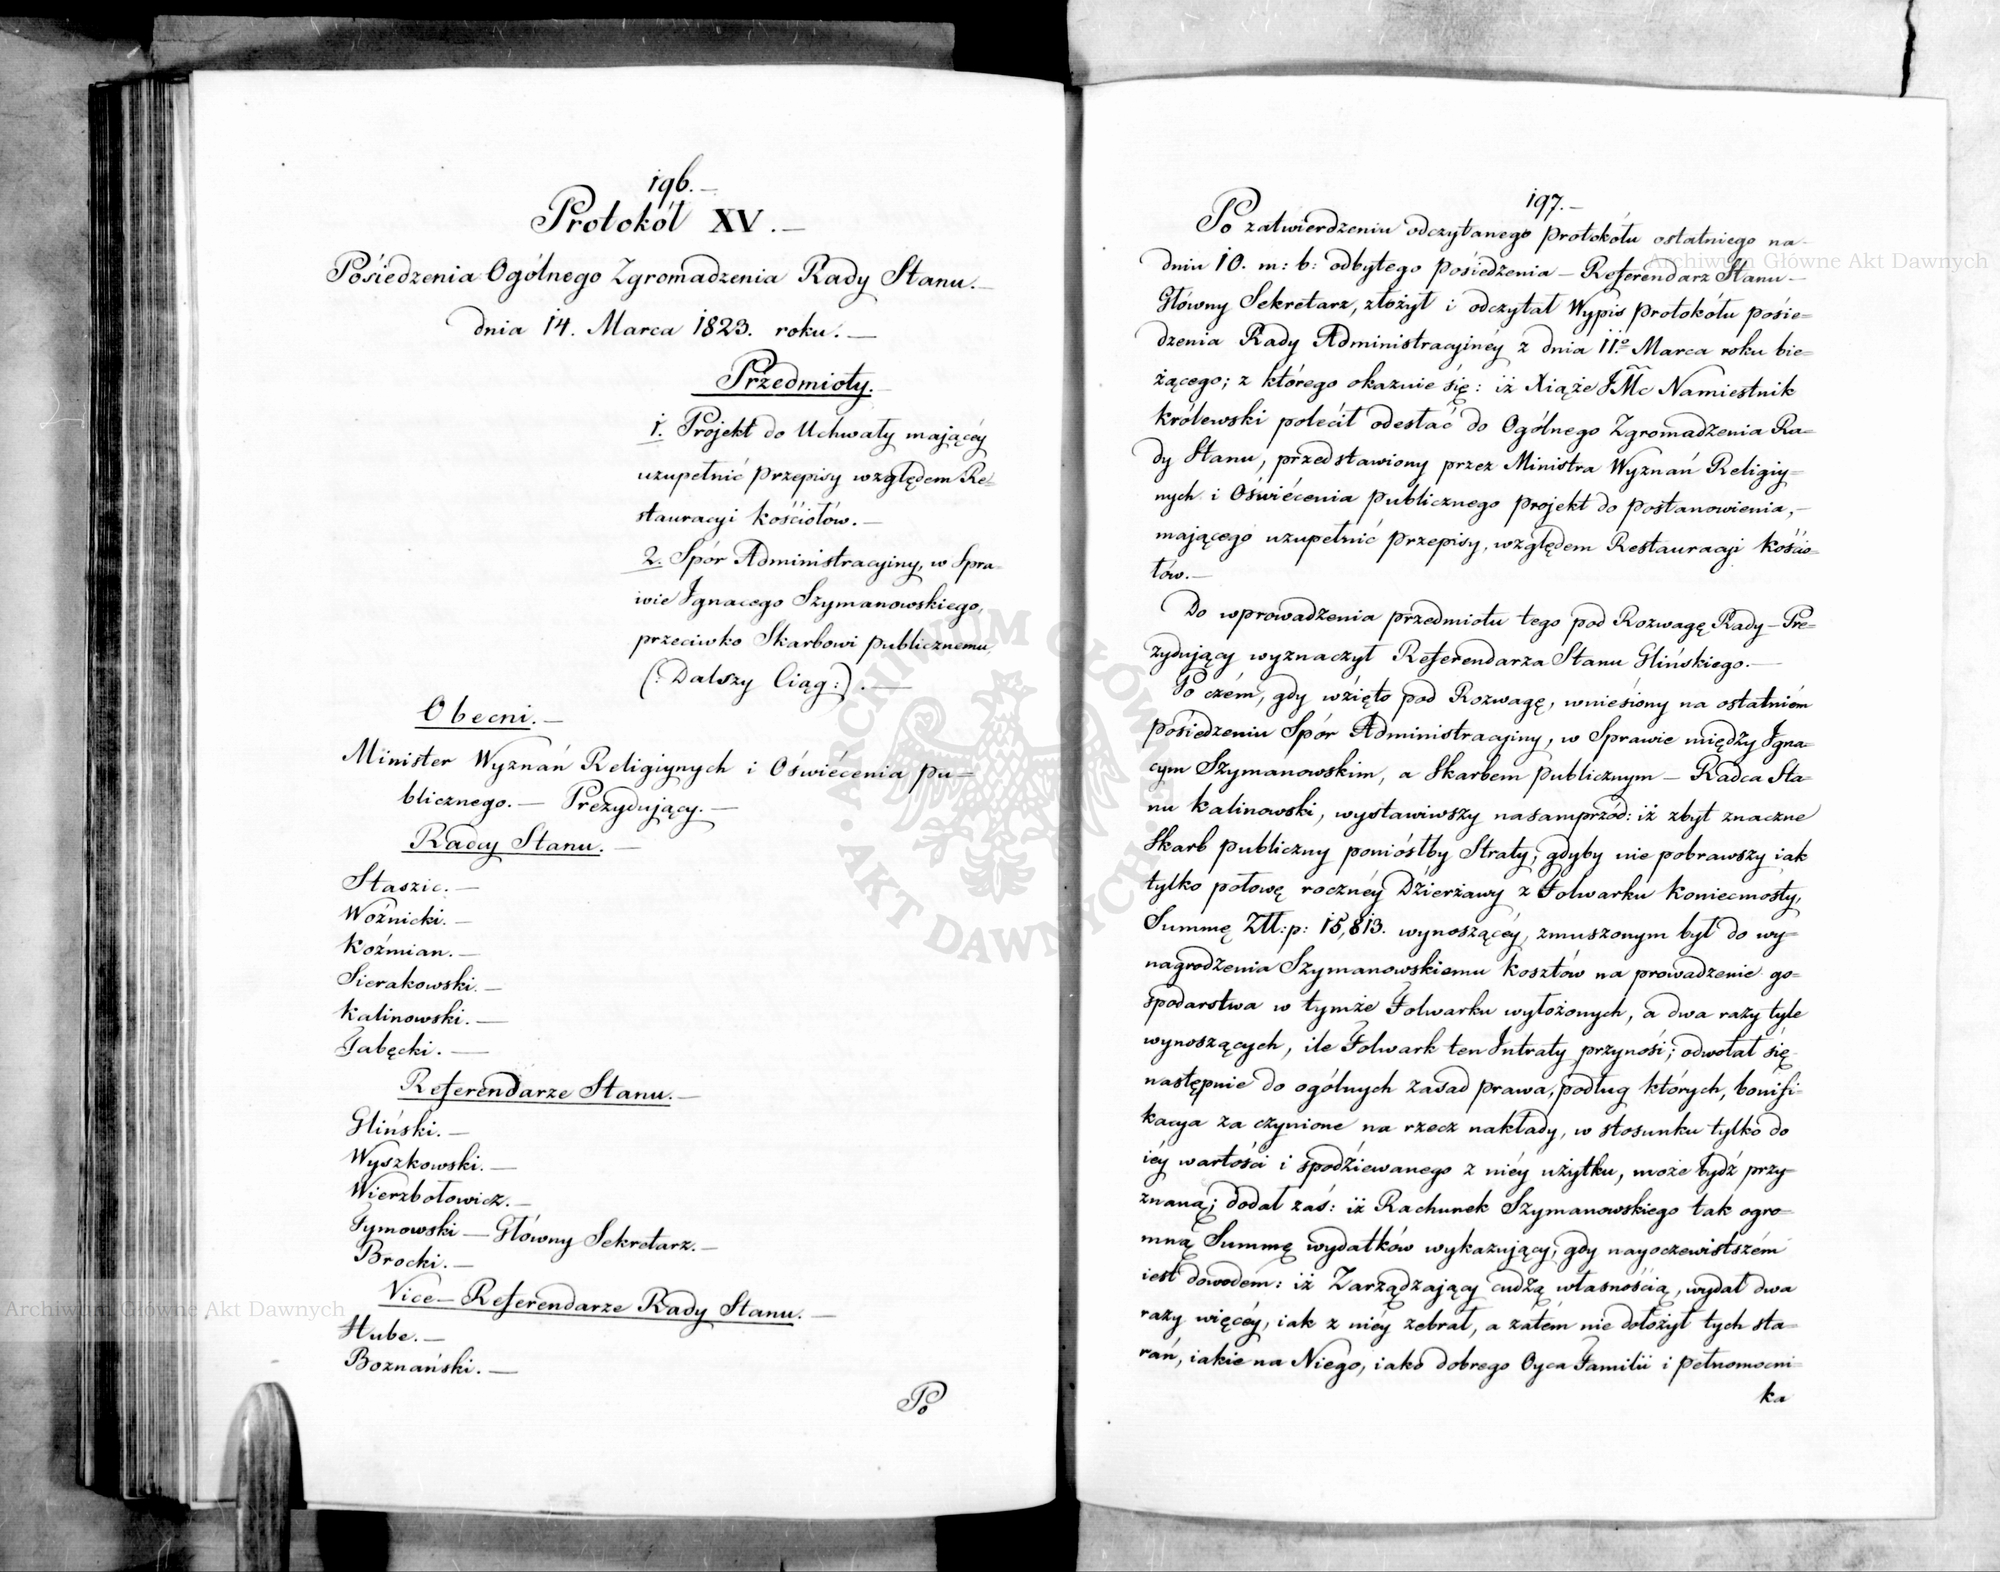 196.—
Protokół XV.—
Posiedzenia Ogólnego Zgromadzenia Rady Stanu.—
dnia 14. Marca 1823. roku.—
Przedmioty.
1. Projekt do Uchwały maiącéy
uzupełnić przepisy względem Re=
stauracyi kościołów.—
2. Spór Administracyiny, w Spra=
wie Ignacego Szymanowskiego,
przeciwko Skarbowi publicznemu,
(: Dalszy Ciąg:).—
Obecni.—
Minister Wyznań Religiynych i Oświécenia pu=
blicznego.— Prezyduiący.—
Radcy Stanu.—
Staszic.—
Woźnicki.—
Koźmian.—
Sierakowski.—
Kalinowski.—
Tabęcki.—
Referendarze Stanu.—
Gliński.—
Wyszkowski.—
Wierzbołowicz.—
Tymowski — Główny Sekretarz.—
Brocki.—
Vice—Referendarze Rady Stanu.—
Hube.—
Boznański.—
Po
197.—
Po zatwierdzeniu odczytanego protokółu ostatniego na
dniu 10. m: b: odbytego posiedzenia — Referendarz Stanu —
Główny Sekretarz, złożył i odczytał Wypis protokółu posie=
dzenia Rady Administracyinéy z dnia 11º Marca roku bie=
żącego; z którego okazuie się: iż Xiąże JMc Namiestnik
Królewski polecił odesłać do Ogólnego Zgromadzenia Ra=
dy Stanu, przedstawiony przez Ministra Wyznań Religiy=
nych i Oświécenia publicznego projekt do postanowienia,—
maiącego uzupełnić przepisy, względem Restauracyi kościo=
łów.—
Do wprowadzenia przedmiotu tego pod Rozwagę Rady — Pre=
zyduiący wyznaczył Referendarza Stanu Glińskiego.—
Po czém, gdy wzięto pod Rozwagę, wniesiony na ostatniém
posiedzeniu Spór Administracyiny, w Sprawie między Igna=
cym Szymanowskim, a Skarbem publicznym — Radca Sta=
nu Kalinowski, wystawiwszy nasamprzód: iż zbyt znaczne
Skarb publiczny poniósłby Straty, gdyby nie pobrawszy iak
tylko połowę rocznéy Dzierżawy z Folwarku Koniecmosty,
Summę Złł:p: 15,813. wynoszącéy, zmuszonym był do wy=
nagrodzenia Szymanowskiemu kosztów na prowadzenie go=
spodarstwa w tymże Folwarku wyłożonych, a dwa razy tyle
wynoszących, ile Folwark ten Intraty przynosi; odwołał się
następnie do ogólnych zasad prawa, podług których, bonifi=
kacya za czynione na rzecz nakłady, w stosunku tylko do
iéy wartości i spodziewanego z niéy użytku, może bydź przy=
znaną; dodał zaś: iż Rachunek Szymanowskiego tak ogro=
mną Summę wydatków wykazuiący, gdy nayoczewistszém
iest dowodem: iż Zarządzaiący cudzą własnością, wydał dwa
razy więcéy, iak z niéy zebrał, a zatém nie dołożył tych sta=
rań, iakie na Niego, iako dobrego Oyca Familii i pełnomocni=
ka
Archiwum Główne Akt Dawnych
Archiwum Główne Akt Dawnych
ARCHIWUM GŁÓWNE AKT DAWNYCH